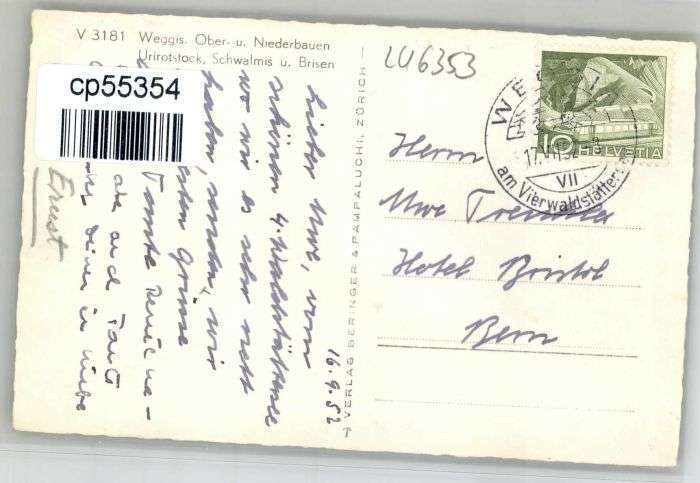 V 3181 Weggis. Ober- u. Niederbauen
Urirotstock, Schwalmis u. Brisen
cp55354
LU6353
WEGGIS
17.VII.52
VII
am Vierwaldstättersee
10 HELVETIA
Herrn
Uwe
Hotel Bristol
Bern
VERLAG BERINGER & PAMPALUCHI, ZÜRICH
16.9.52
Lieber Uwe, vom
schönen 4. Waldstättersee
wo wir es sehr nett
haben, senden wir
Grüsse
Tante
und Tante
Dein in Liebe
Ernst